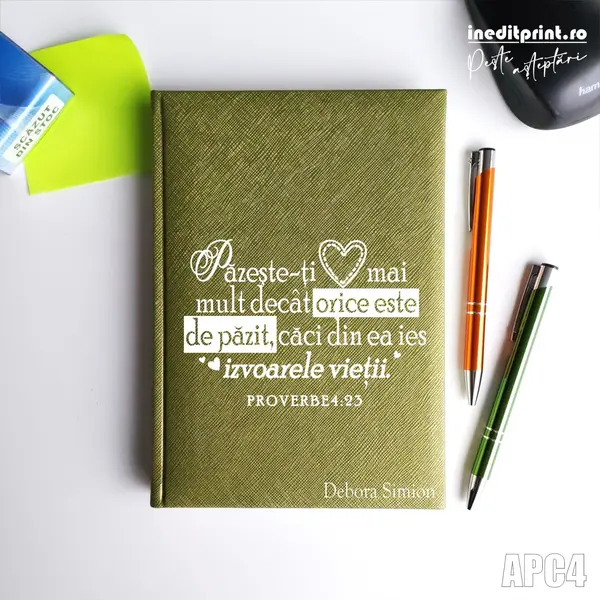 ineditprint.ro
Peste așteptări
SCĂZUT
DIN STOC
ham
Păzește-ți mai
mult decât orice este
de păzit, căci din ea ies
izvoarele vieții.
PROVERBE4:23
Debora Simion
APC4